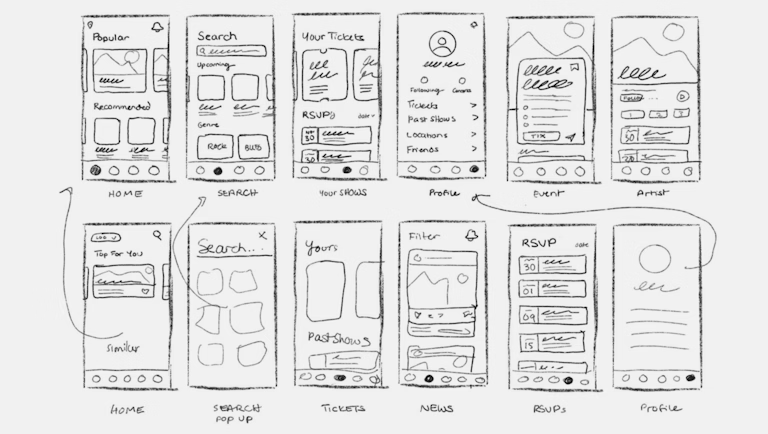 Popular
Recommended
HOME
Search
Upcoming
Genre
ROCK
SEARCH
Your Tickets
RSVPs
date
30
30
Your SHOWS
Following
Tickets >
Past Shows >
Locations >
Friends >
Profile
TIX
Event
Follow
1
2
3
30
Artist
LOG
Top For You
Similar
HOME
Search...
SEARCH
POP UP
Yours
Past Shows
TICKETS
Filter
NEWS
RSVP
date
30
01
09
15
RSVPs
Profile